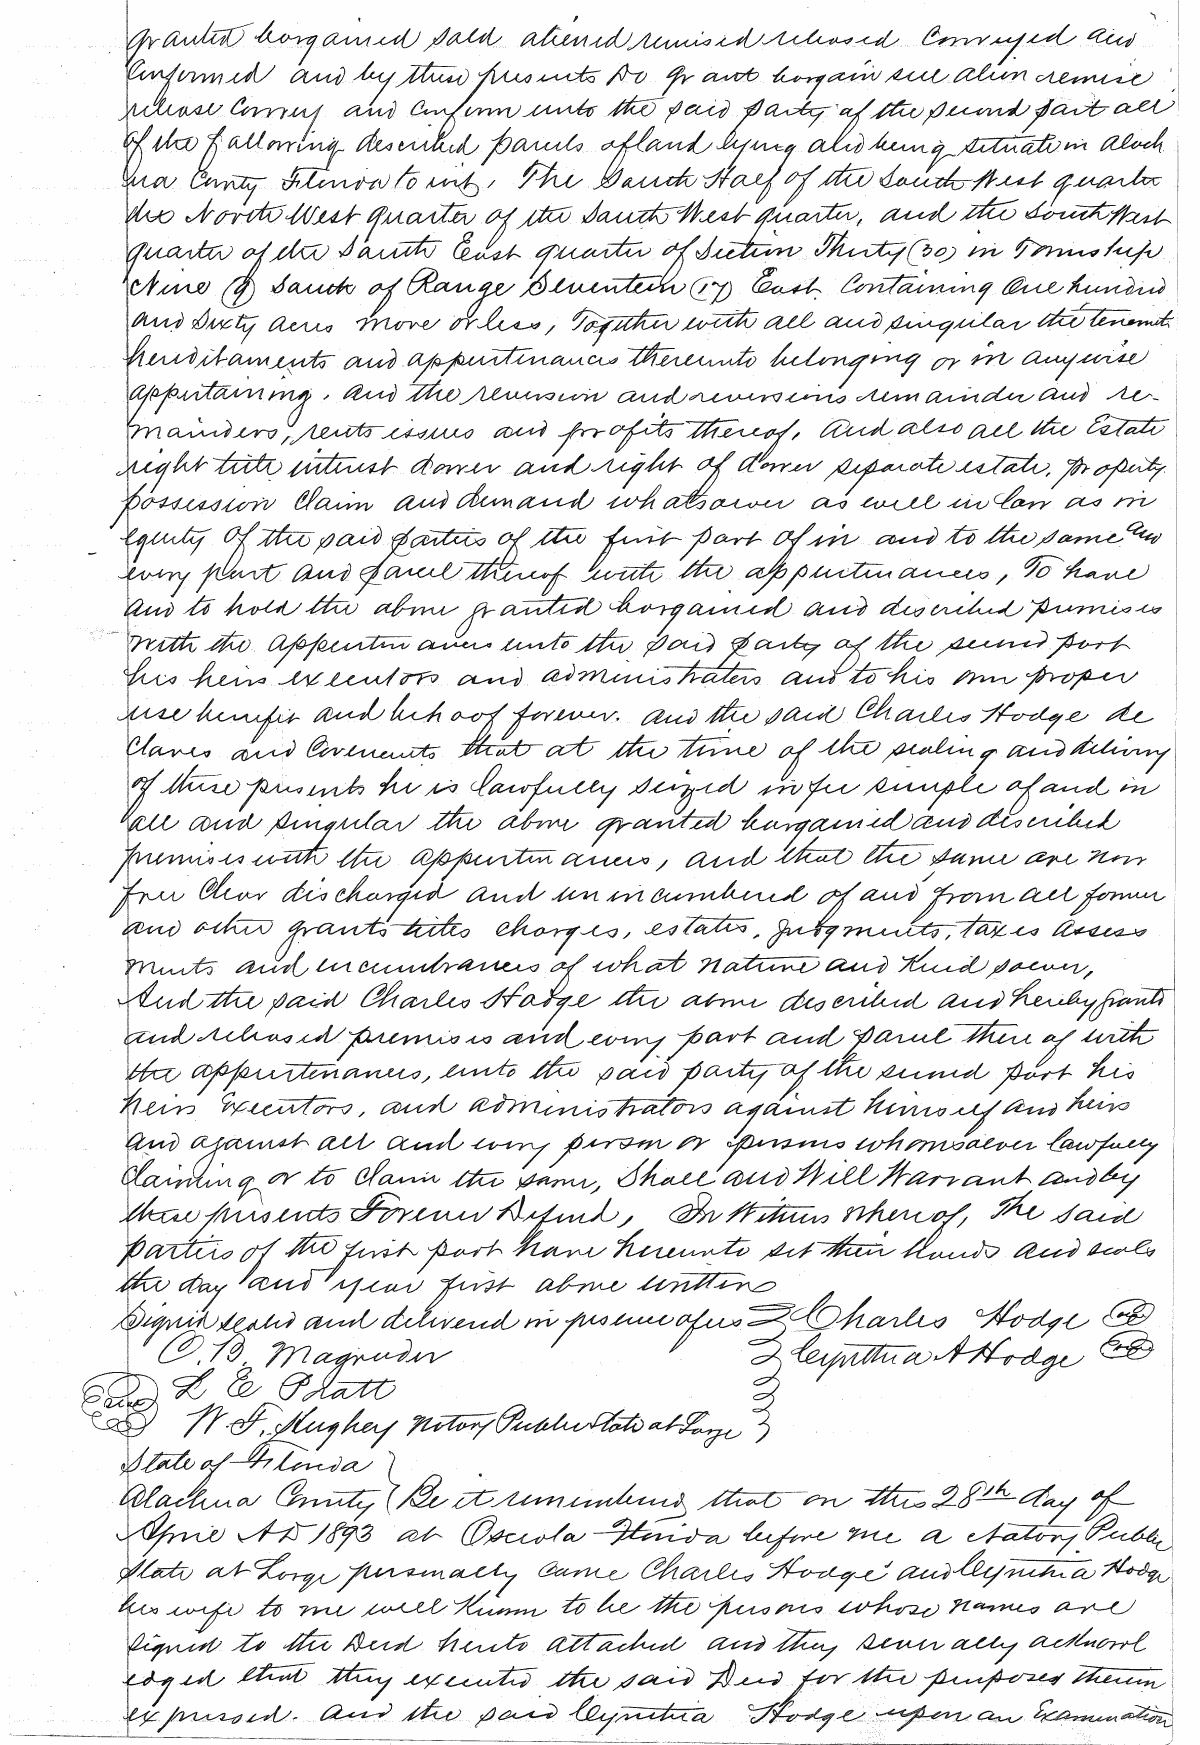 granted bargained sold aliened remised released Conveyed and
Confirmed and by these presents Do grant bargain sell alien remise
release Convey and Confirm unto the said party of the second part all
of the following described parcels of land lying and being situate in Alach
ua County Florida to wit, The South Half of the South West quarter
the North West quarter of the South West quarter, and the South West
quarter of the South East quarter of Section Thirty (30) in Township
Nine (9) South of Range Seventeen (17) East. Containing One hundred
and Sixty acres more or less, Together with all and singular the tenemts
hereditaments and appurtenances thereunto belonging or in anywise
appertaining. and the reversion and reversions remainder and re-
mainders, rents issues and profits thereof, And also all the Estate
right title interest dower and right of dower separate estate, property
possession Claim and demand whatsoever as well in law as in
equity of the said parties of the first part of in and to the same and
every part and parcel thereof with the appurtenances, To have
and to hold the above granted bargained and described premises
with the appurtenances unto the said party of the second part
his heirs executors and administrators and to his own proper
use benefit and behoof forever. and the said Charles Hodge de
clares and Covenants that at the time of the sealing and delivery
of these presents he is lawfully seized in fee simple of and in
all and singular the above granted bargained and described
premises with the appurtenances, and that the same are now
free Clear discharged and unincumbered of and from all former
and other grants titles charges, estates, judgments, taxes assess
ments and encumbrances of what nature and Kind soever,
And the said Charles Hodge the above described and hereby grants
and released premises and every part and parcel there of with
the appurtenances, unto the said party of the second part his
heirs executors, and administrators against himself and heirs
and against all and every person or persons whomsoever lawfully
claiming or to claim the same, Shall and Will Warrant and by
these presents Forever Defend, In Witness whereof, The said
parties of the first part have hereunto set their hands and seals
the day and year first above written
Signed sealed and delivered in presence of us Charles Hodge
C. B. Magruder Cynthia A Hodge
L E Pratt
W. F. Hughey Notory Public State at Large
State of Florida
Alachua County Be it remembered that on this 28th day of
April A D 1893 at Osceola Florida before me a Notory Public
State at Large personally came Charles Hodge and Cynthia Hodge
his wife to me well Known to be the persons whose names are
signed to the Deed hereto attached and they severally acknowl
edged that they executed the said Deed for the purposes therein
expressed. And the said Cynthia Hodge upon an Examination